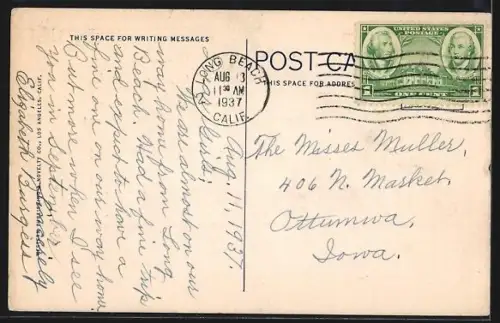 THIS SPACE FOR WRITING MESSAGES
POST CA
THIS SPACE FOR ADDRES
LONG BEACH
AUG 13
11 30 AM
1937
CALIF.
UNITED STATES
POSTAGE
ONE CENT
Aug. 11, 1937.
We are almost on our
way home from Long
Beach. Had a fine trip
and expect to have a
fine one on our way home.
But more when I see
you in September.
Elizabeth
LOS ANGELES, CALIF.
The Misses Muller,
406 N. Market
Ottumwa,
Iowa.